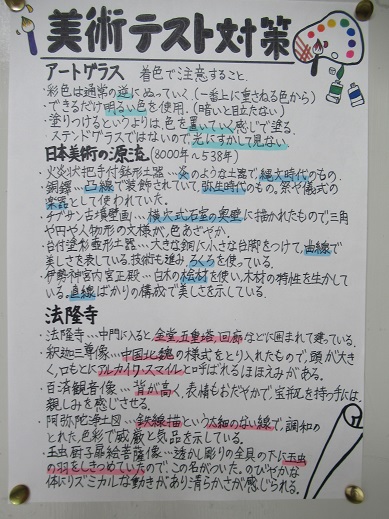 美術テスト対策
アートグラス 着色で注意すること。
・彩色は通常の逆にぬっていく。(一番上に重ねる色から)
・できるだけ明るい色を使用。(暗いと目立たない)
・塗りつけるというよりは、色を置いていく感じで塗る。
・ステンドグラスではないので、光にすかして見ない。
日本美術の源流(8000年~538年)
・火炎状把手付鉢形土器…炎のような土器で、縄文時代のもの。
・銅鐸…凸線で装飾されていて、弥生時代のもの。祭や儀式の
楽器として使われていた。
・チブサン古墳壁画…横穴式石室の奥壁に描かれたもので、三角
や円や人物形の文様が、色あざやか。
・台付塗彩壺形土器…大きな胴に小さな台脚をつけて、曲線で
美しさを表している。技術も進み、ろくろを使っている。
・伊勢神宮内宮正殿…白木の桧材を使い、木材の特性を生かして
いる。直線ばかりの構成で美しさを示している。
法隆寺
・法隆寺…中門に入ると、金堂、五重塔、回廊などに囲まれて建っている。
・釈迦三尊像…中国北魏の様式をとり入れたもので、頭が大き
く、口もとにアルカイク・スマイルと呼ばれるほほえみがある。
・百済観音像…背が高く、表情もおだやかで、宝瓶を持つ手には、
親しみを感じさせる。
・阿弥陀浄土図…鉄線描という太細のない線で、調和の
とれた色彩で威厳と気品を示している。
・玉虫厨子扉絵菩薩像…透かし彫りの金具の下に玉虫
の羽をしきつめていたので、この名がついた。のびやかな
体にリズミカルな動きがあり清らかさが感じられる。